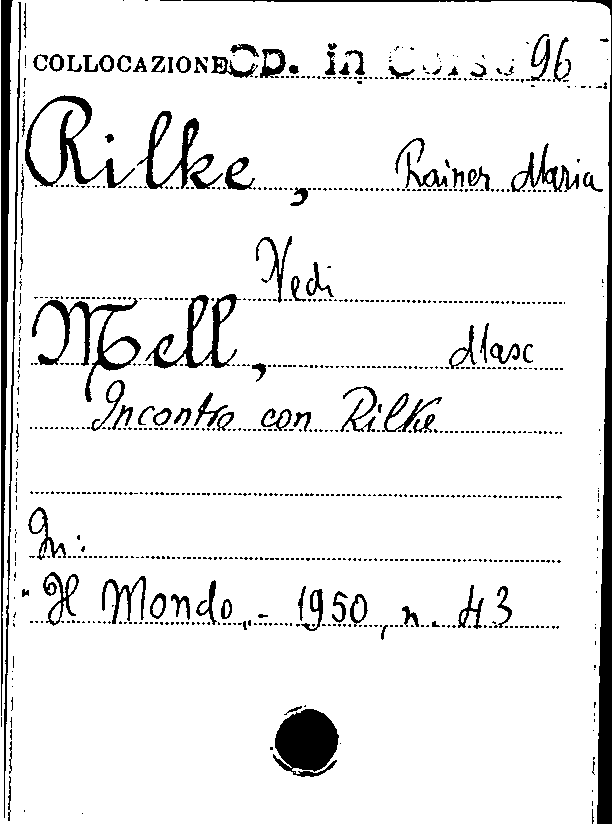 COLLOCAZIONE Op. in Corso 96
Rilke, Rainer Maria
Vedi
Mell, Max
Incontro con Rilke
In:
"Il Mondo„ - 1950, n. 43